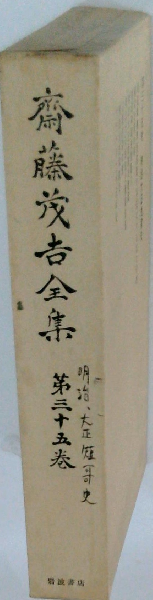 齋藤茂吉全集
第三十五巻
明治、大正短哥史
岩波書店